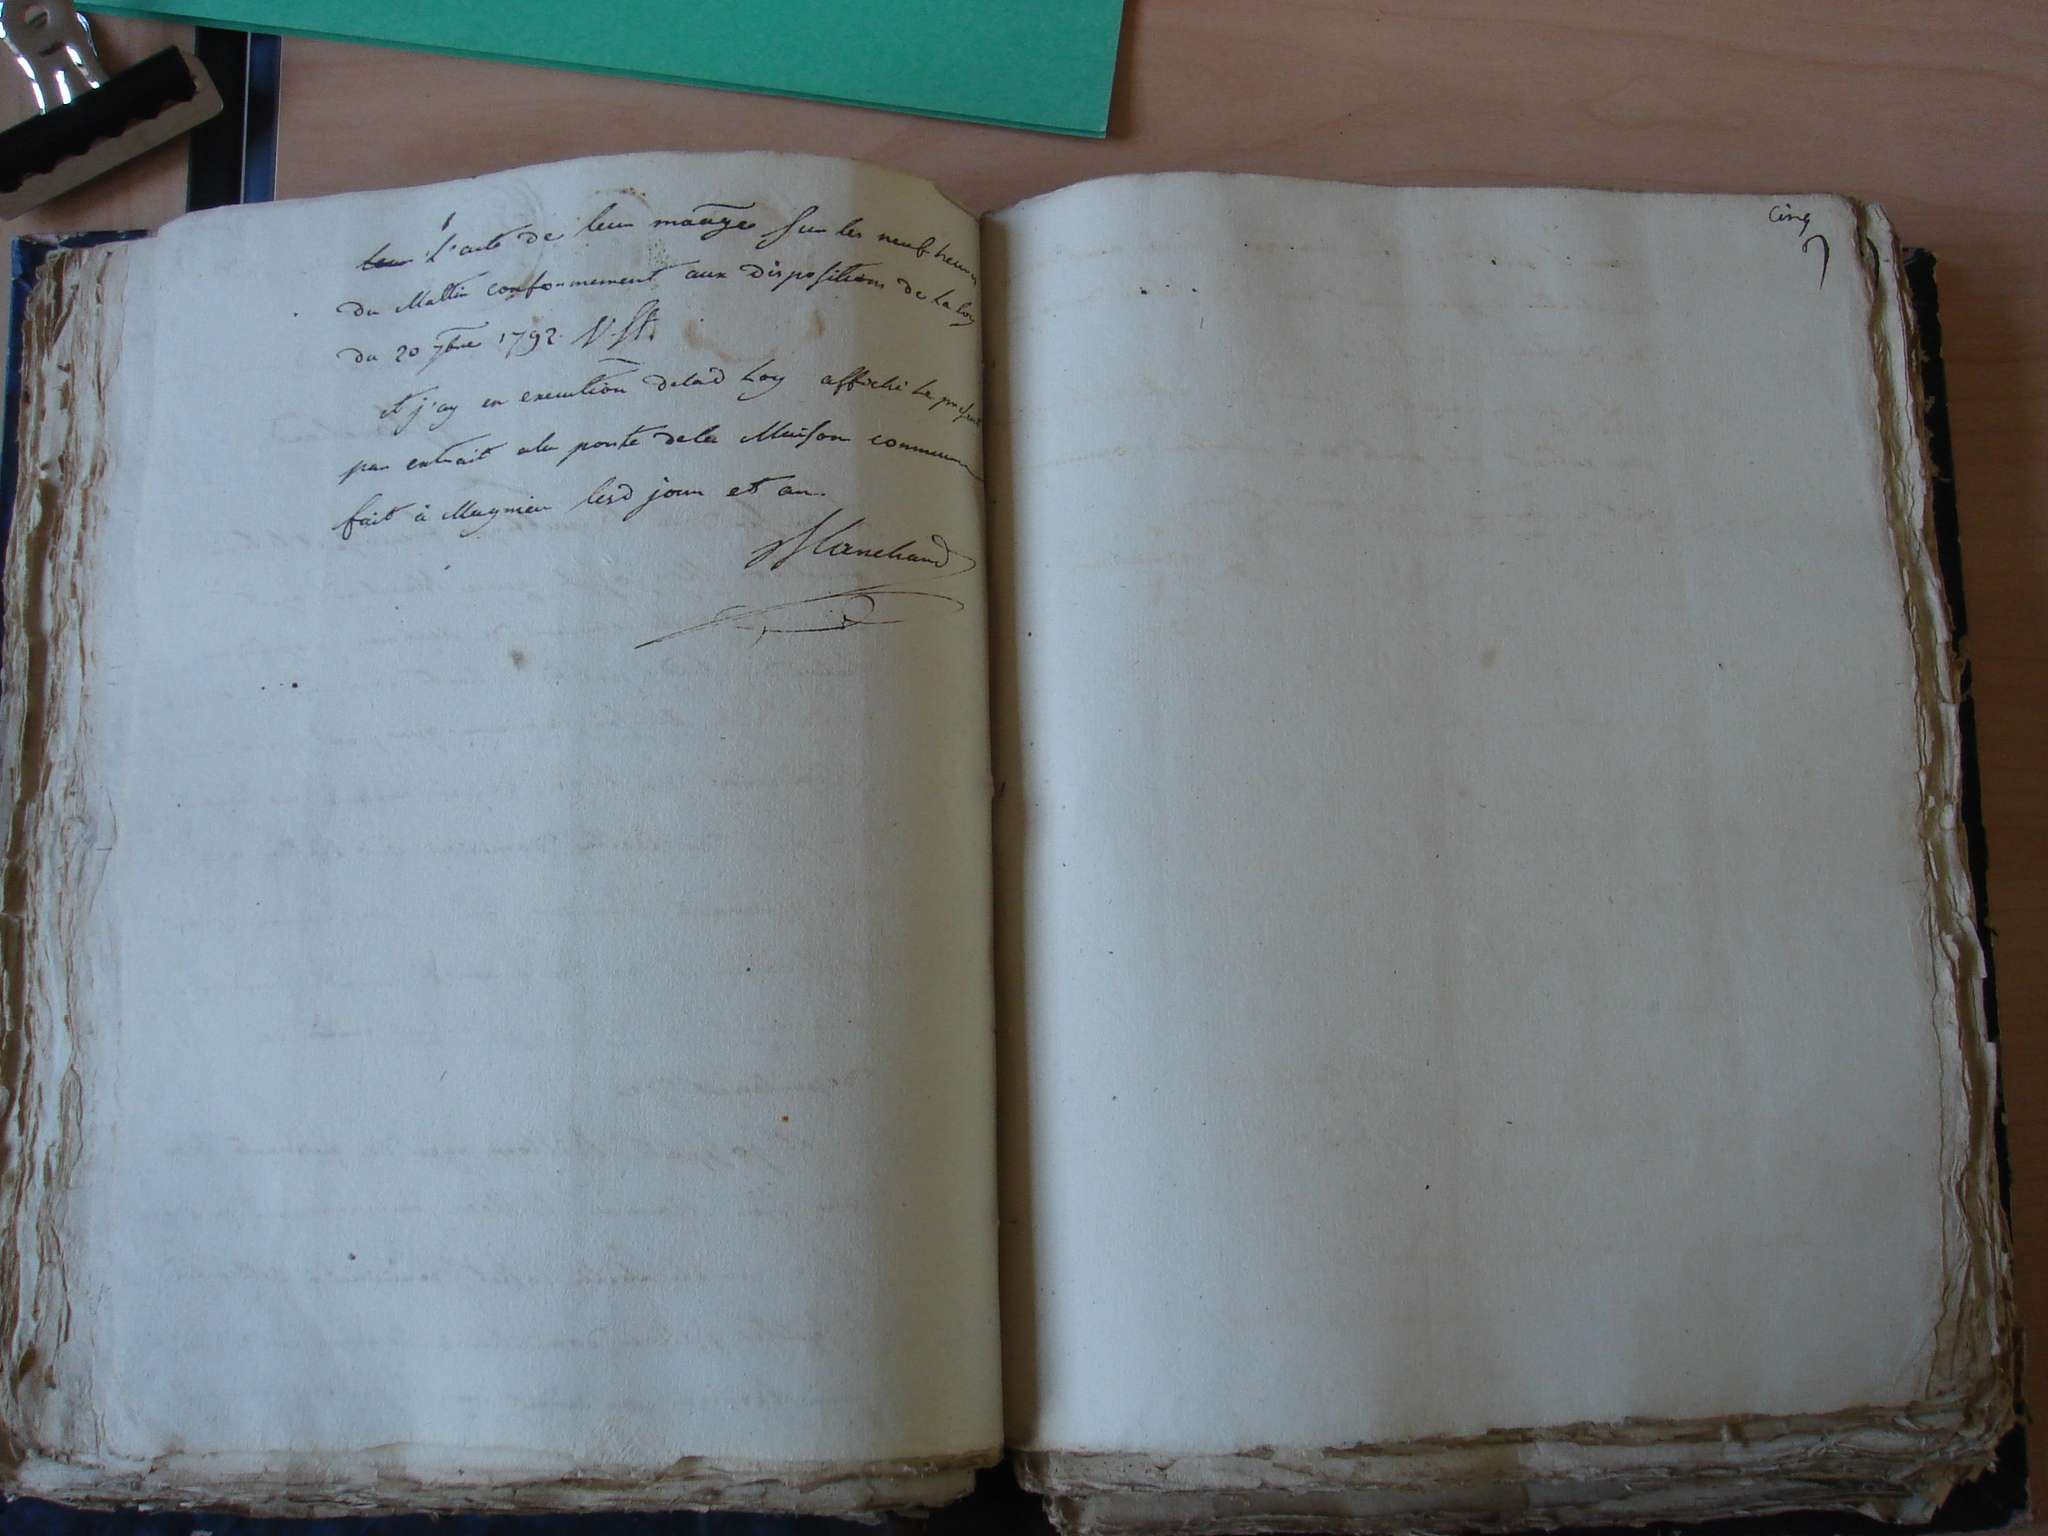 l'acte de leur mariage sur les neuf heures
du Mattin conformement aux dispositions de la loy
du 20 7bre 1792. V. St.
et j'ay en execution de lad loy affiché le présent
par extrait a la porte de la Maison commune
fait à Magnieu lesd jour et an.
Blanchard
cinq